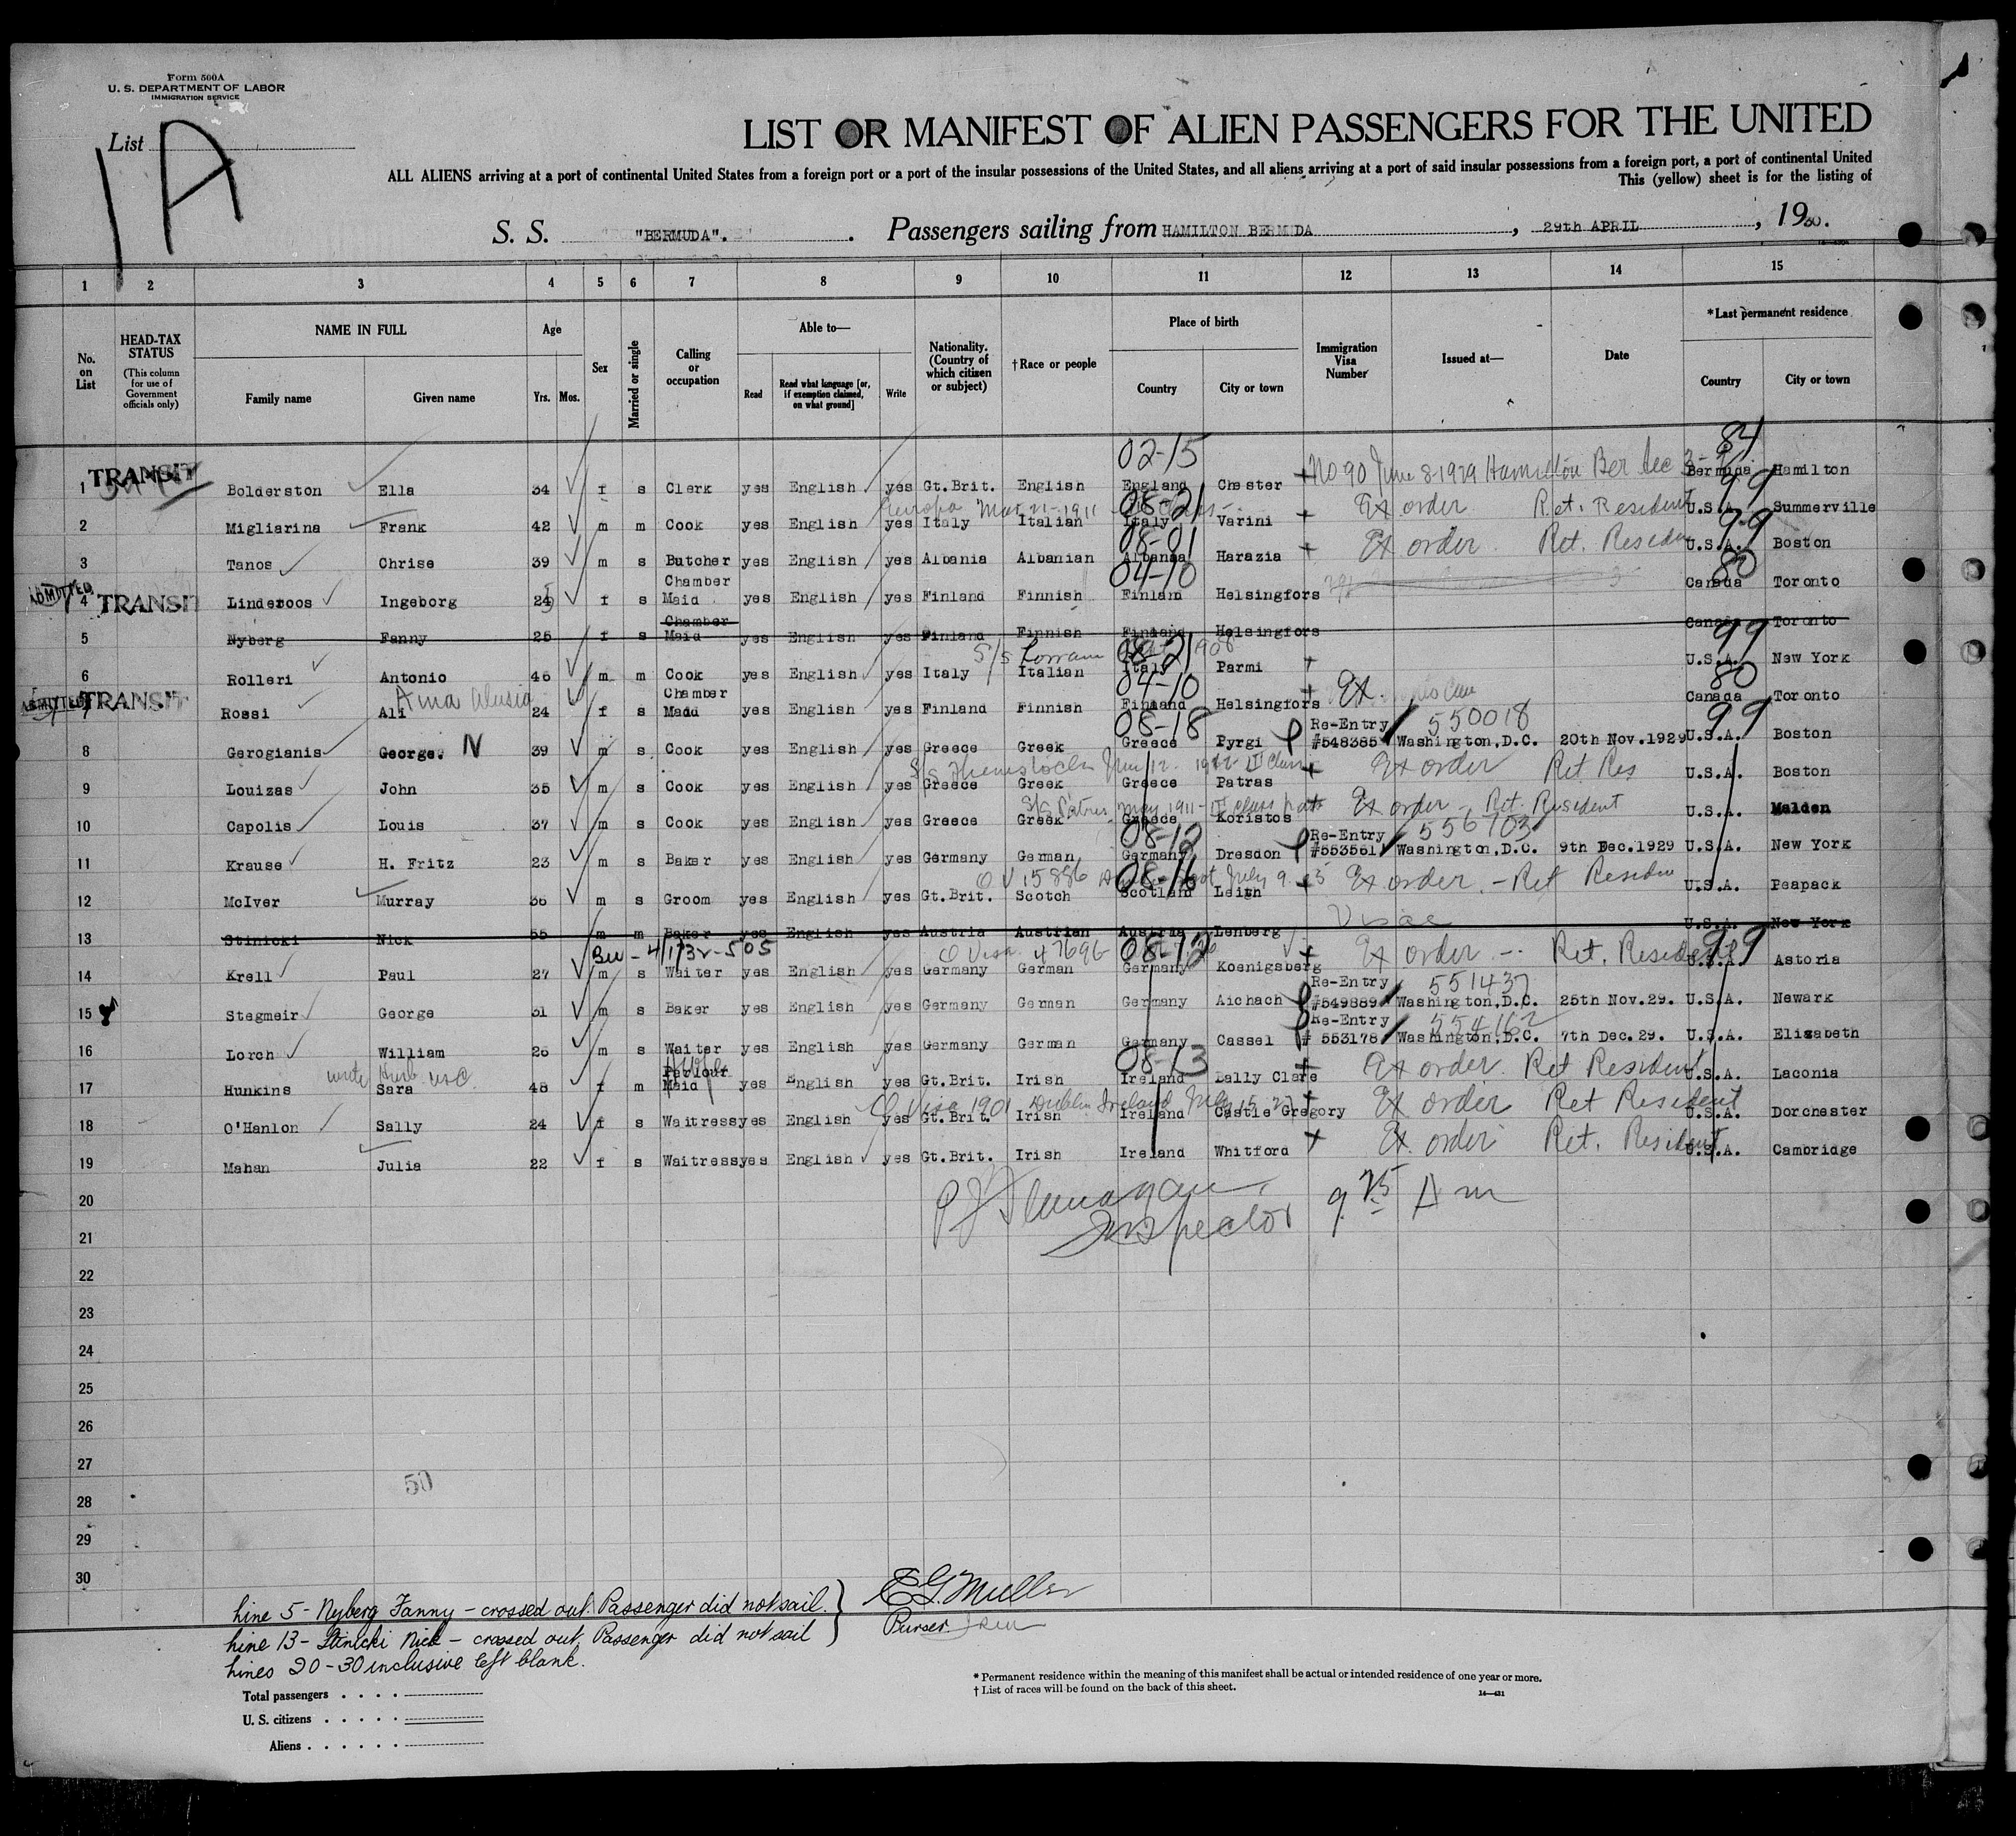 Form 500A
U. S. DEPARTMENT OF LABOR
IMMIGRATION SERVICE
List 1A
LIST OR MANIFEST OF ALIEN PASSENGERS FOR THE UNITED
ALL ALIENS arriving at a port of continental United States from a foreign port or a port of the insular possessions of the United States, and all aliens arriving at a port of said insular possessions from a foreign port, a port of continental United
This (yellow) sheet is for the listing of
S. S. "BERMUDA". Passengers sailing from HAMILTON BERMUDA, 29th APRIL, 1930.
1 2 3 4 5 6 7 8 9 10 11 12 13 14 15
No. on List
HEAD-TAX STATUS
(This column for use of Government officials only)
NAME IN FULL
Family name Given name
Age
Yrs. Mos.
Sex
Married or single
Calling or occupation
Able to—
Read Read what language [or, if exemption claimed, on what ground] Write
Nationality. (Country of which citizen or subject)
†Race or people
Place of birth
Country City or town
Immigration Visa Number
Issued at—
Date
*Last permanent residence
Country City or town
02-15 84
TRANSIT
1 Bolderston Ella 34 f s Clerk yes English yes Gt.Brit. English England Chester No 90 June 8-1929 Hamilton Ber Sec 3- Bermuda Hamilton
Mar 1911 08-21 99
2 Migliarina Frank 42 m m Cook yes English yes Italy Italian Italy Varini Ex order Ret. Resident U.S.A. Summerville
08-01 99
3 Tanos Chrise 39 m s Butcher yes English yes Albania Albanian Albania Harazia Ex order. Ret. Resident U.S.A. Boston
04-10 80
ADMITTED TRANSIT
4 Linderoos Ingeborg 24 f s Chamber Maid yes English yes Finland Finnish Finlam Helsingfors Canada Toronto
5 Nyberg Fanny 25 f s Chamber Maid yes English yes Finland Finnish Finland Helsingfors Canada Toronto
S/s Lorraine 08-21 1908 99
6 Rolleri Antonio 46 m m Cook yes English yes Italy Italian Italy Parmi U.S.A. New York
04-10 80
ADMITTED TRANSIT
7 Rossi Ali Aina 24 f s Chamber Maid yes English yes Finland Finnish Finland Helsingfors Ex. Canada Toronto
08-18 550018 99
8 Gerogianis George. IV 39 m s Cook yes English yes Greece Greek Greece Pyrgi Re-Entry #548385 Washington,D.C. 20th Nov.1929 U.S.A. Boston
9 Louizas John 35 m s Cook yes English yes Greece Greek Greece Patras Ex order Ret Res U.S.A. Boston
May 1911
10 Capolis Louis 37 m s Cook yes English yes Greece Greek Greece Koristos Ex order - Ret. Resident U.S.A. Malden
08-12 556703
11 Krause H. Fritz 23 m s Baker yes English yes Germany German Germany Dresdon Re-Entry #553551 Washington,D.C. 9th Dec.1929 U.S.A. New York
08-16 July 9
12 McIver Murray 36 m s Groom yes English yes Gt.Brit. Scotch Scotland Leith Ex order - Ret Resident U.S.A. Peapack
13 Stinicki Nick 55 m m Baker yes English yes Austria Austrian Austria Lenberg U.S.A. New York
Bu-4/1/32-505 Q Visa 47696 08-12 99
14 Krell Paul 27 m s Waiter yes English yes Germany German Germany Koenigsberg Ex order -- Ret. Resident U.S.A. Astoria
551437
15 Stegmeir George 31 m s Baker yes English yes Germany German Germany Aichach Re-Entry #549889 Washington,D.C. 25th Nov.29. U.S.A. Newark
16 Lorch William 26 m s Waiter yes English yes Germany German Germany Cassel Re-Entry # 553178 Washington,D.C. 7th Dec.29. U.S.A. Elizabeth
08-13
17 Hunkins Sara 48 f m Parlour Maid yes English yes Gt.Brit. Irish Ireland Bally Clare Ex order. Ret Resident U.S.A. Laconia
Q Visa 1901 Dublin Ireland July 15 27
18 O'Hanlon Sally 24 f s Waitress yes English yes Gt.Brit. Irish Ireland Castle Gregory Ex order Ret Resident U.S.A. Dorchester
19 Mahan Julia 22 f s Waitress yes English yes Gt.Brit. Irish Ireland Whitford Ex. order Ret. Resident U.S.A. Cambridge
20
Inspector 9 25 Am
21
22
23
24
25
26
27
50
28
29
30
Line 5 - Nyberg Fanny - crossed out. Passenger did not sail.
Line 13 - Stinicki Nick - crossed out. Passenger did not sail
Lines 20-30 inclusive left blank.
E G Muller
Purser.
Total passengers
U. S. citizens
Aliens
* Permanent residence within the meaning of this manifest shall be actual or intended residence of one year or more.
† List of races will be found on the back of this sheet.
14—431